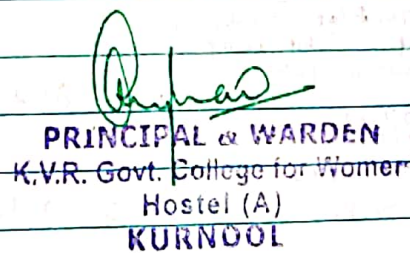 PRINCIPAL & WARDEN
K.V.R. Govt. College for Women
Hostel (A)
KURNOOL